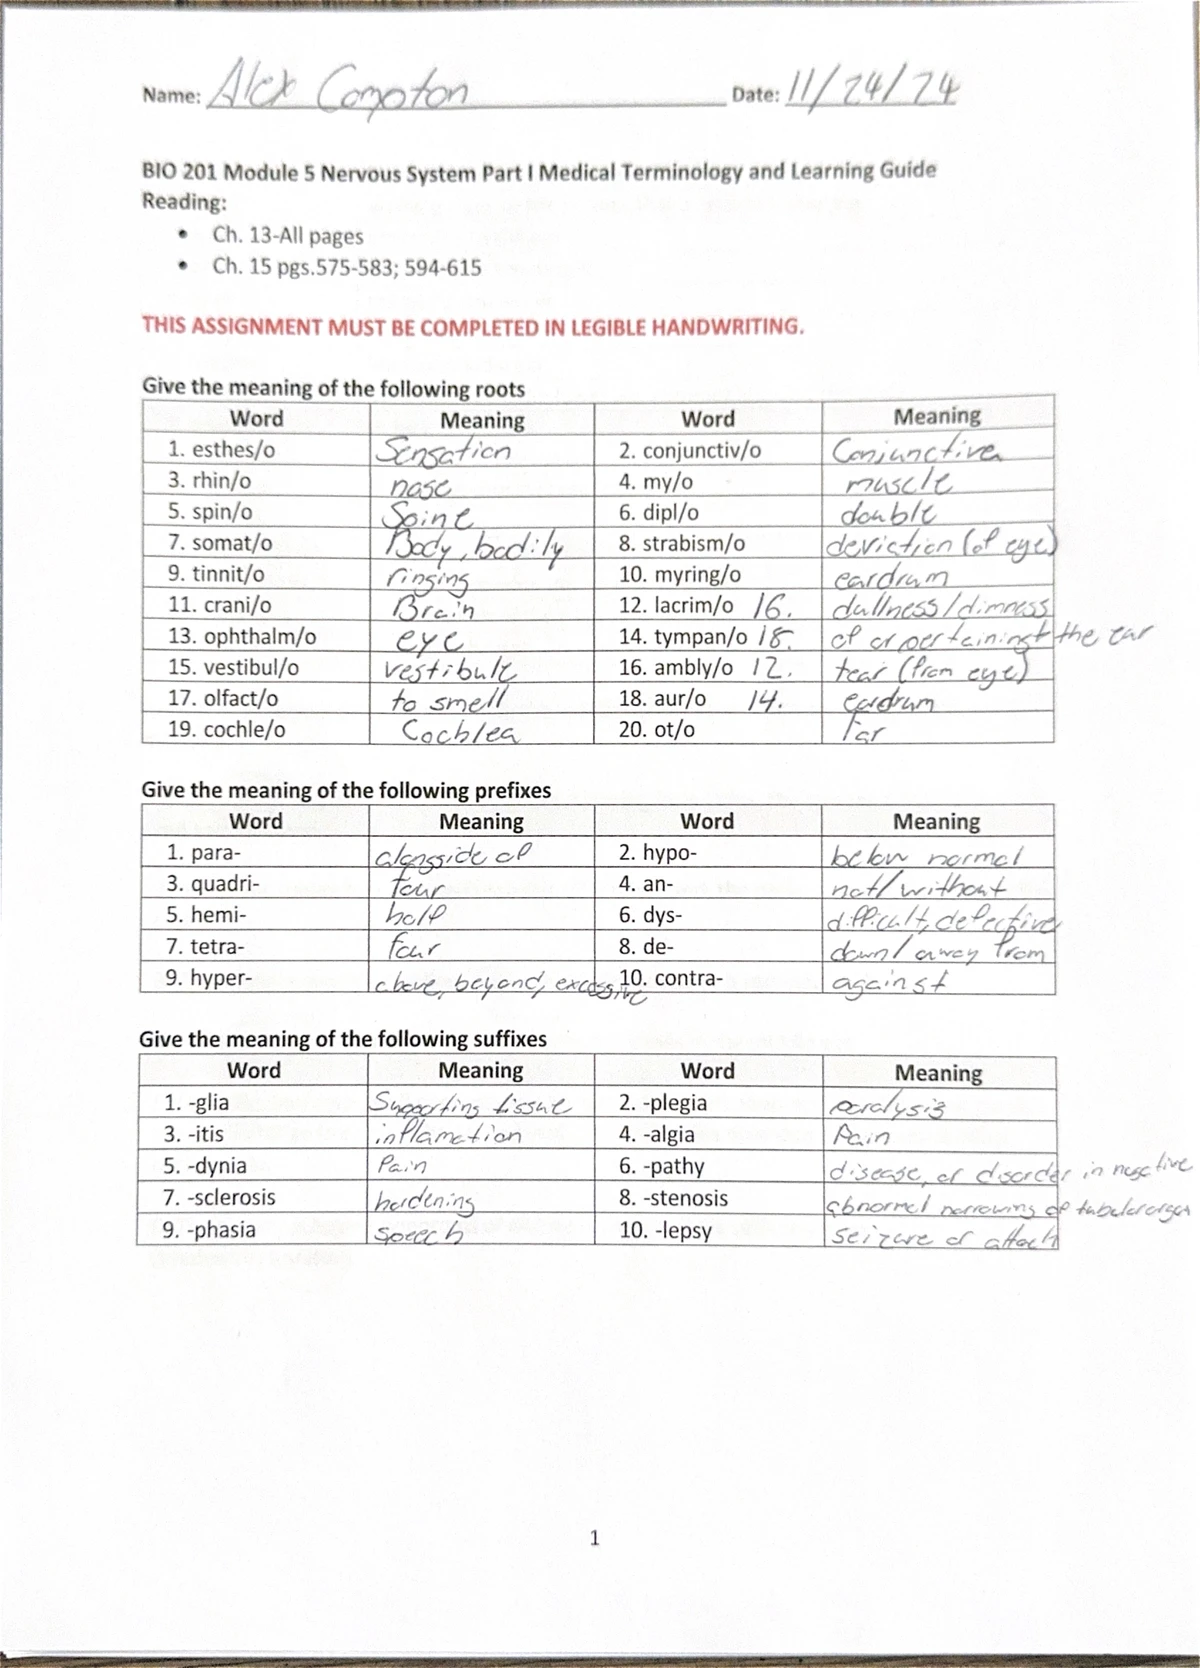 Name: Alex Compton Date: 11/24/24
BIO 201 Module 5 Nervous System Part I Medical Terminology and Learning Guide
Reading:
• Ch. 13-All pages
• Ch. 15 pgs.575-583; 594-615
THIS ASSIGNMENT MUST BE COMPLETED IN LEGIBLE HANDWRITING.
Give the meaning of the following roots
Word Meaning Word Meaning
1. esthes/o Sensation 2. conjunctiv/o Conjunctiva
3. rhin/o nose 4. my/o muscle
5. spin/o Spine 6. dipl/o double
7. somat/o Body, bodily 8. strabism/o deviction (of eye)
9. tinnit/o ringing 10. myring/o eardrum
11. crani/o Brain 12. lacrim/o 16. dullness/dimness
13. ophthalm/o eye 14. tympan/o 18. of or pertainingt the ear
15. vestibul/o vestibule 16. ambly/o 12. tear (from eye)
17. olfact/o to smell 18. aur/o 14. eardrum
19. cochle/o Cochlea 20. ot/o Ear
Give the meaning of the following prefixes
Word Meaning Word Meaning
1. para- alongside of 2. hypo- below normal
3. quadri- four 4. an- not/without
5. hemi- half 6. dys- difficult, defective
7. tetra- four 8. de- down/away from
9. hyper- above, beyond, excessive 10. contra- against
Give the meaning of the following suffixes
Word Meaning Word Meaning
1. -glia Supporting tissue 2. -plegia paralysis
3. -itis inflamation 4. -algia Pain
5. -dynia Pain 6. -pathy disease, or disorder in negative
7. -sclerosis hardening 8. -stenosis abnormal narrowing of tubular organ
9. -phasia speech 10. -lepsy seizure or attack
1